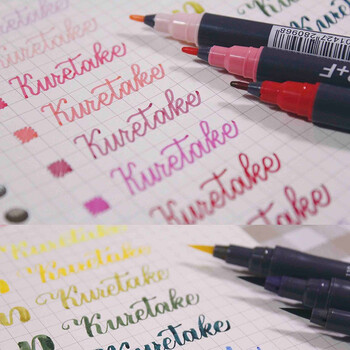 Kuretake
Kuretake
Kuretake
Kuretake
Kuretake
Kuretake
Kuretake
Kuretake
Kuretake
Kuretake
Kuretake
Kuretake